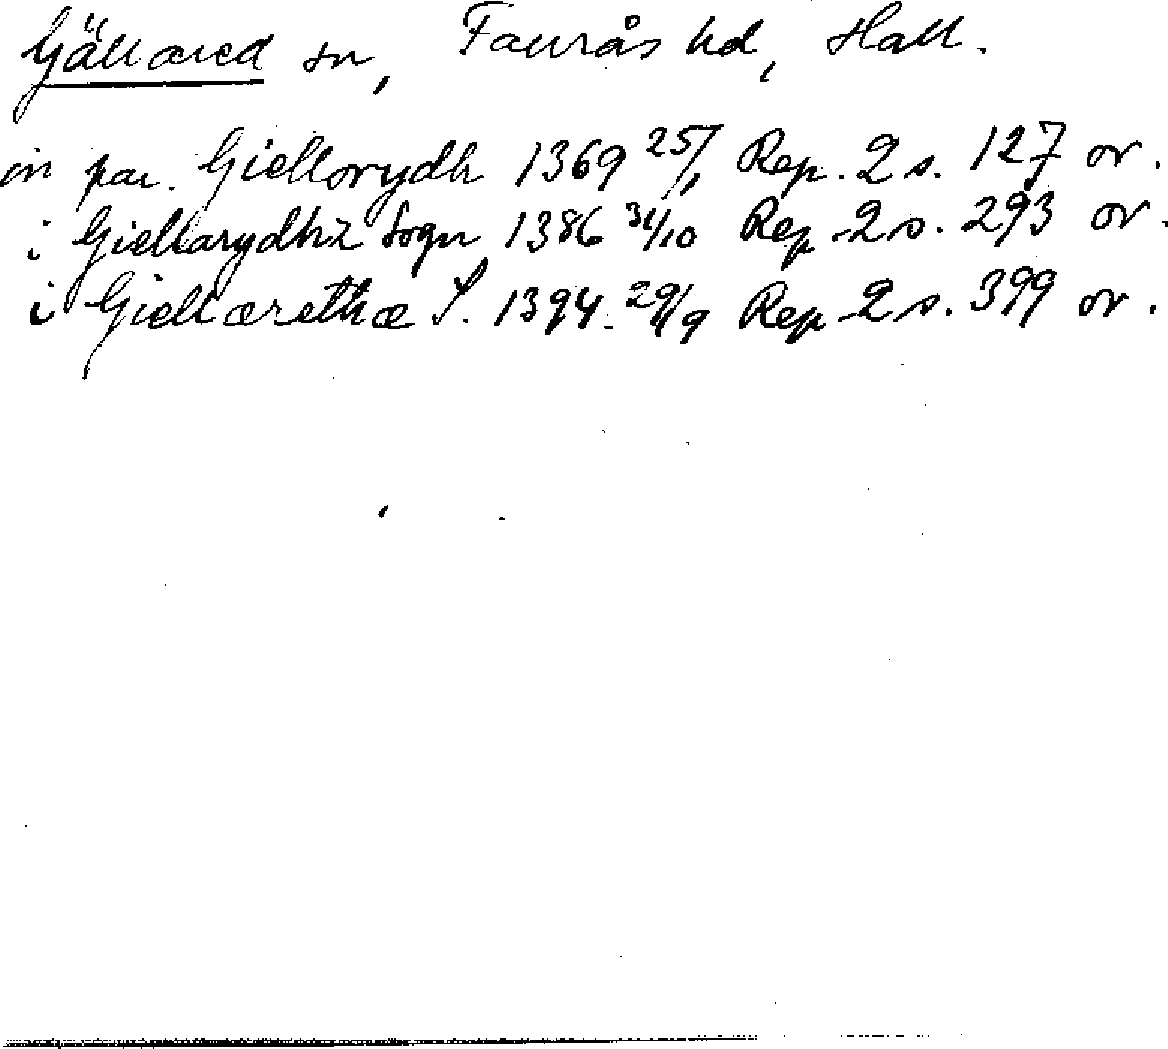 Gällared sn, Faurås hd, Hall.
in par. Giellorydh 1369 25/1 Rep. 2 s. 127 or.
i Giellarydhz Sogn 1386 31/10 Rep 2 s. 293 or.
i Giellærethæ S. 1394. 29/9 Rep 2 s. 399 or.